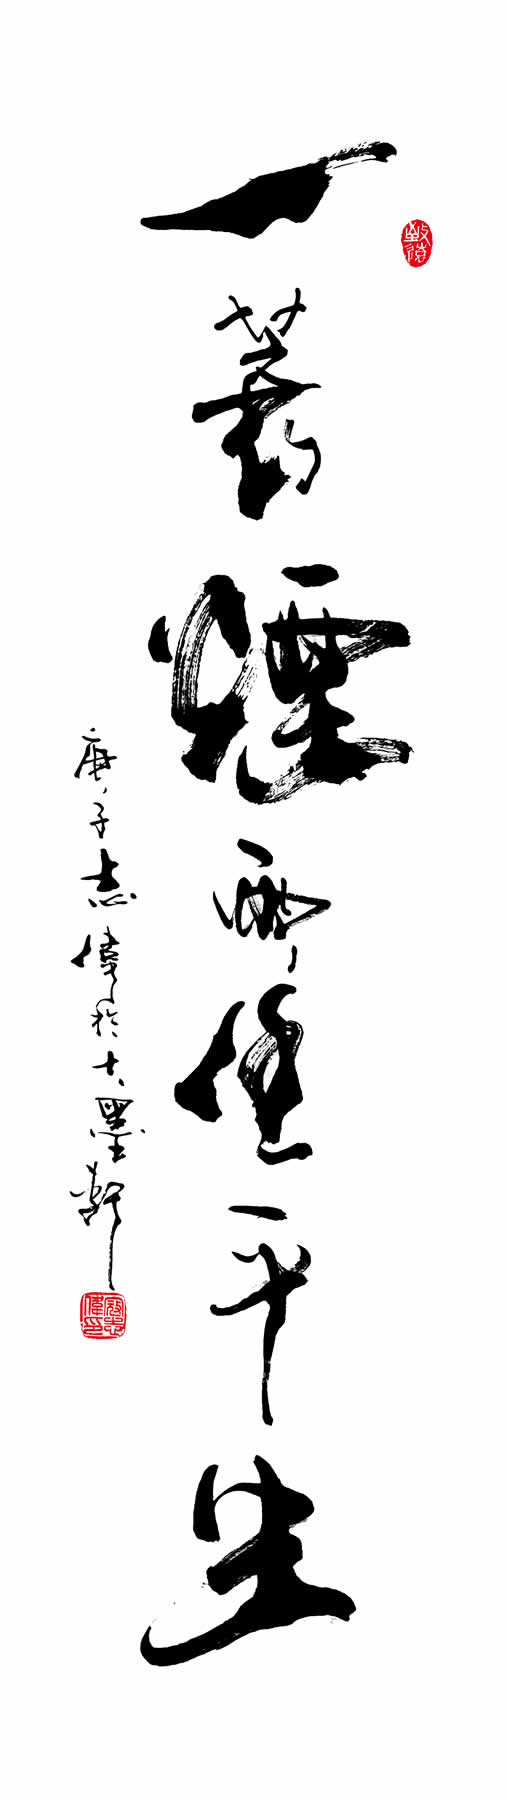 一蓑煙雨任平生
庚子志偉於大墨軒
致遠